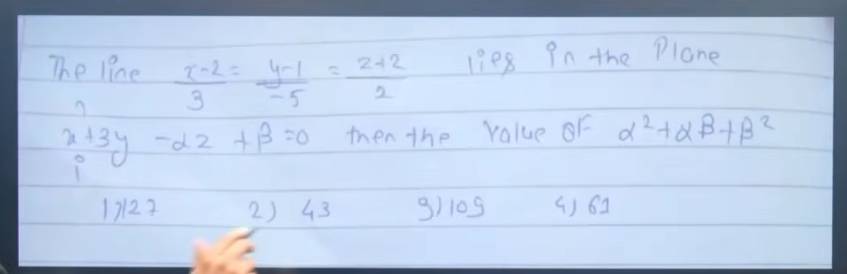 The line x-2/3 = y-1/-5 = z+2/2 lies in the Plane
x+3y -αz +β=0 then the value of α²+αβ+β²
1) 127 2) 43 3) 109 4) 61